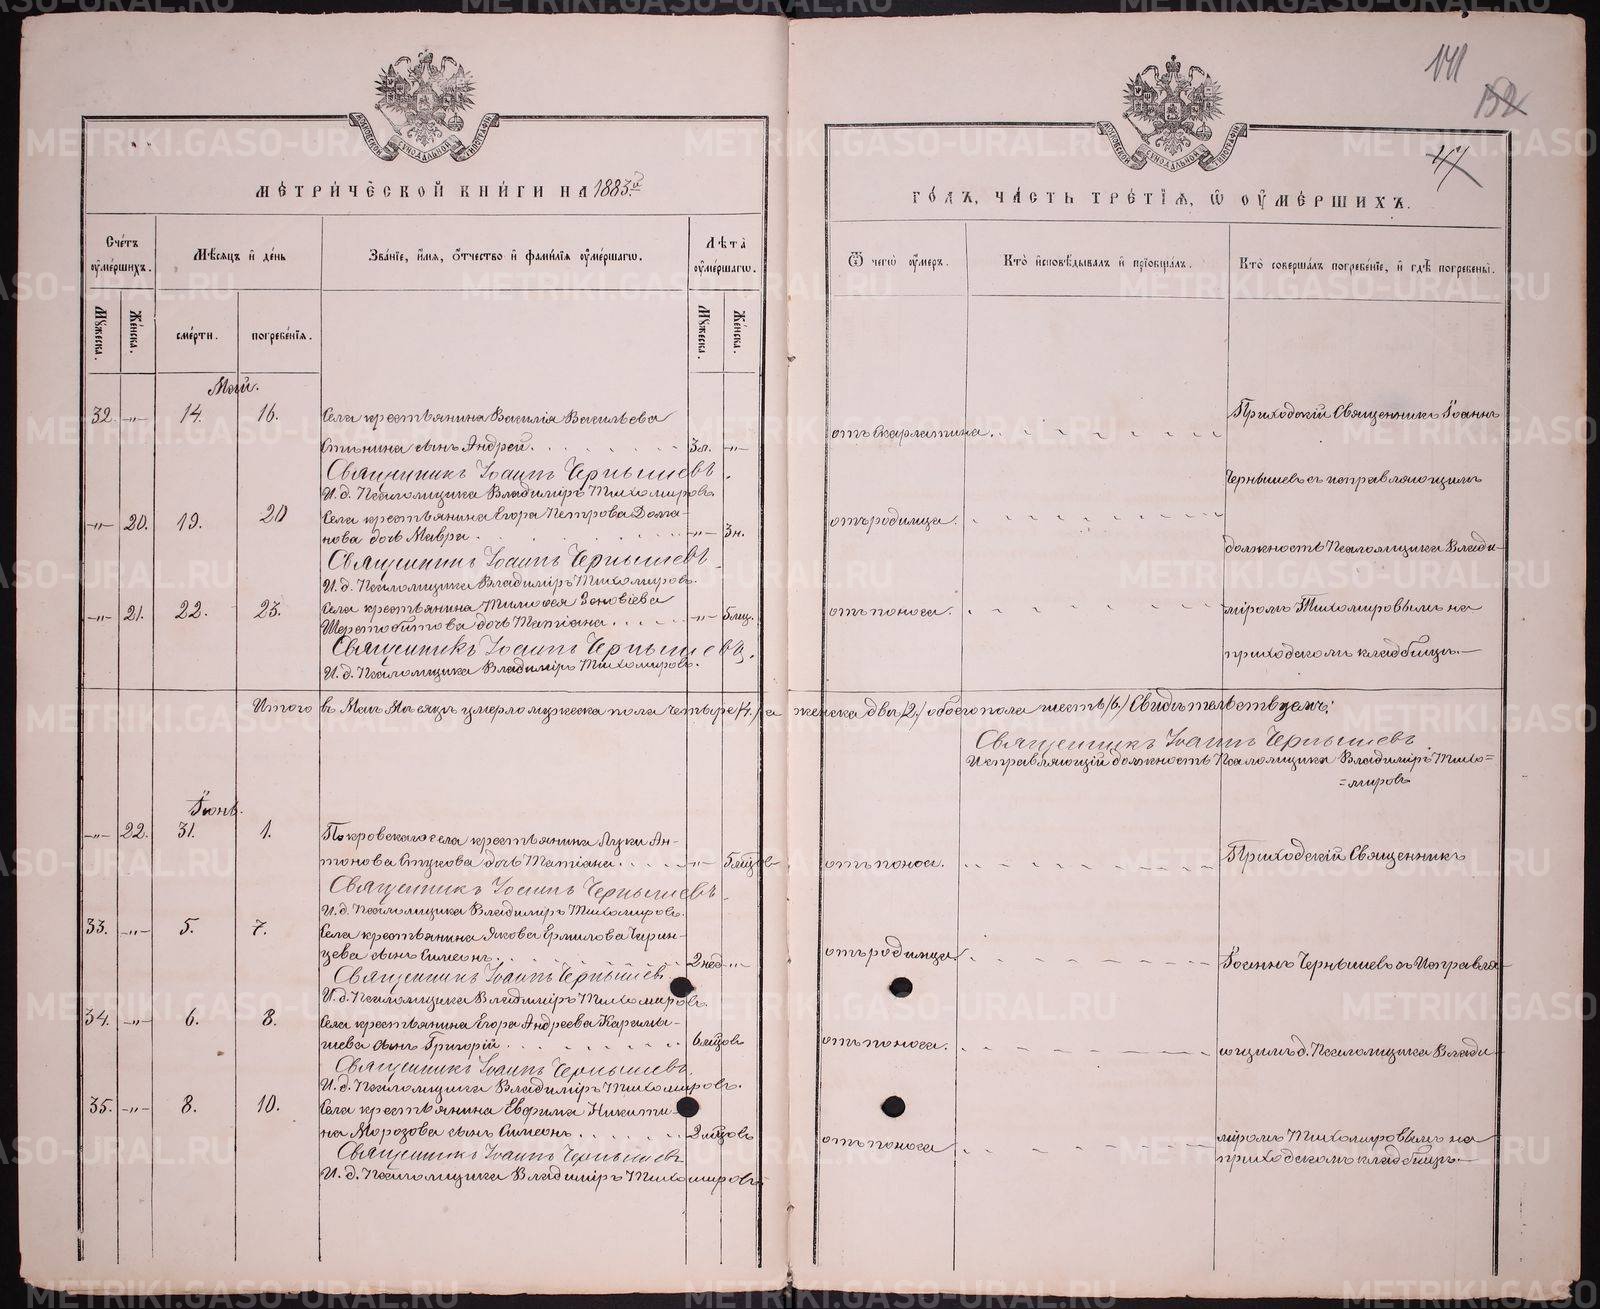 МЕТРИЧЕСКОЙ КНИГИ НА 1883й
Счетъ умершихъ.
Месяцъ и день
Званіе, имя, отчество и фамилія умершаго.
Лѣта умершаго.
Мужеска.
Женска.
смерти.
погребенія.
Мужеска.
Женска.
Май.
32. -"- 14. 16. Села крестьянина Василія Васильева
Стинина сынъ Андрей. 3л. -"-
Священникъ Іоаннъ Чернышевъ.
И. д. Псаломщика Владиміръ Тихомировъ.
-"- 20. 19. 20 Села крестьянина Егора Петрова Долга-
нова дочь Мавра. -"- 3н.
Священникъ Іоаннъ Чернышевъ.
И. д. Псаломщика Владиміръ Тихомировъ.
-"- 21. 22. 23. Села крестьянина Тимофея Зеновіева
Шерстобитова дочь Татіана. -"- 5мц.
Священникъ Іоаннъ Чернышевъ.
И. д. Псаломщика Владиміръ Тихомировъ.
Итого въ Маѣ Мѣсяцѣ умерло мужеска пола четыре /4./ а
Іюнь.
-"- 22. 31. 1. Покровскаго села крестьянина Луки Ан-
тонова Стукова дочь Татіана. -"- 5мцов
Священникъ Іоаннъ Чернышевъ.
И. д. Псаломщика Владиміръ Тихомировъ.
33. -"- 5. 7. Села крестьянина Якова Ермилова
цева сынъ Симеонъ. 2нед -"-
Священникъ Іоаннъ Чернышевъ.
И. д. Псаломщика Владиміръ Тихомировъ.
34. -"- 6. 8. Села крестьянина Егора Андреева Карамы-
шева сынъ Григорій. 6мцовъ
Священникъ Іоаннъ Чернышевъ.
И. д. Псаломщика Владиміръ Тихомировъ.
35. -"- 8. 10. Села крестьянина Евфима Никити-
на Морозова сынъ Симеонъ. 2мцовъ
Священникъ Іоаннъ Чернышевъ
И. д. Псаломщика Владиміръ Тихомировъ.
141
152
47
ГОДЪ, ЧАСТЬ ТРЕТІЯ, Ѡ ОУМЕРШИХЪ.
Ѿ чегѡ умеръ.
Кто исповѣдывалъ и пріобщалъ.
Кто совершалъ погребеніе, и гдѣ погребены.
отъ скарлатина.
Приходскій Священникъ Іоаннъ
Чернышевъ съ исправляющимъ
отъ родимца.
должность Псаломщика Влади-
отъ поноса.
міромъ Тихомировымъ на
приходскомъ кладбищѣ.
женска двѣ /2./ обоего пола шесть /6./ Свидѣтельствуемъ:
Священникъ Іоаннъ Чернышевъ.
Исправляющій должность Псаломщика Владиміръ Тихо=
=мировъ
отъ поноса.
Приходскій Священникъ
отъ родимца
Іоаннъ Чернышевъ съ Исправля-
отъ поноса.
ющимъ д. Псаломщика Влади-
отъ поноса
міромъ Тихомировымъ на
приходскомъ кладбищѣ.
METRIKI.GASO-URAL.RU